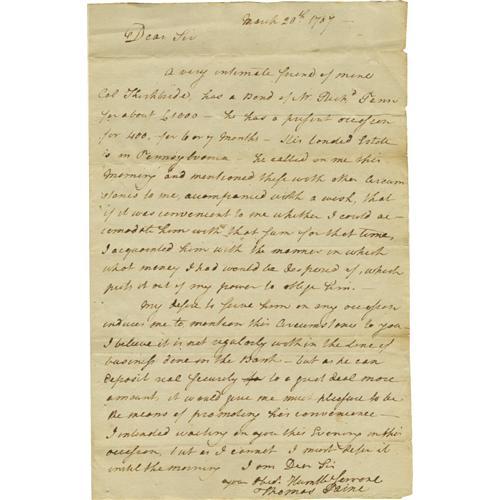 March 20th 1787 —
Dear Sir
A very intimate friend of mine
Col Kirkbride, has a Bond of Mr Richd Penn
for about £1000 — he has a present occasion
for 400. for 6 or 7 Months — His landed Estate
is in Pennsylvania — He called on me this
Morning and mentioned these with other Circum
stances to me, accompanied with a wish, that
if it was convenient to me whether I could ac-
comodate him with that sum for that time,
I acquainted him with the manner in which
what money I had would be disposed of, which
puts it out of my power to oblige him. —
My desire to serve him on any occasion
induces me to mention this Circumstance to you —
I believe it is not regularly within the Line of
business done in the Bank — but as he can
deposit real Security to a great deal more
amount, it would give me much pleasure to be
the means of promoting his convenience —
I intended waiting on you this Evening on this
occasion, but as I cannot I must defer it
until the morning I am Dear Sir
your Obedt Humble Servant
Thomas Paine